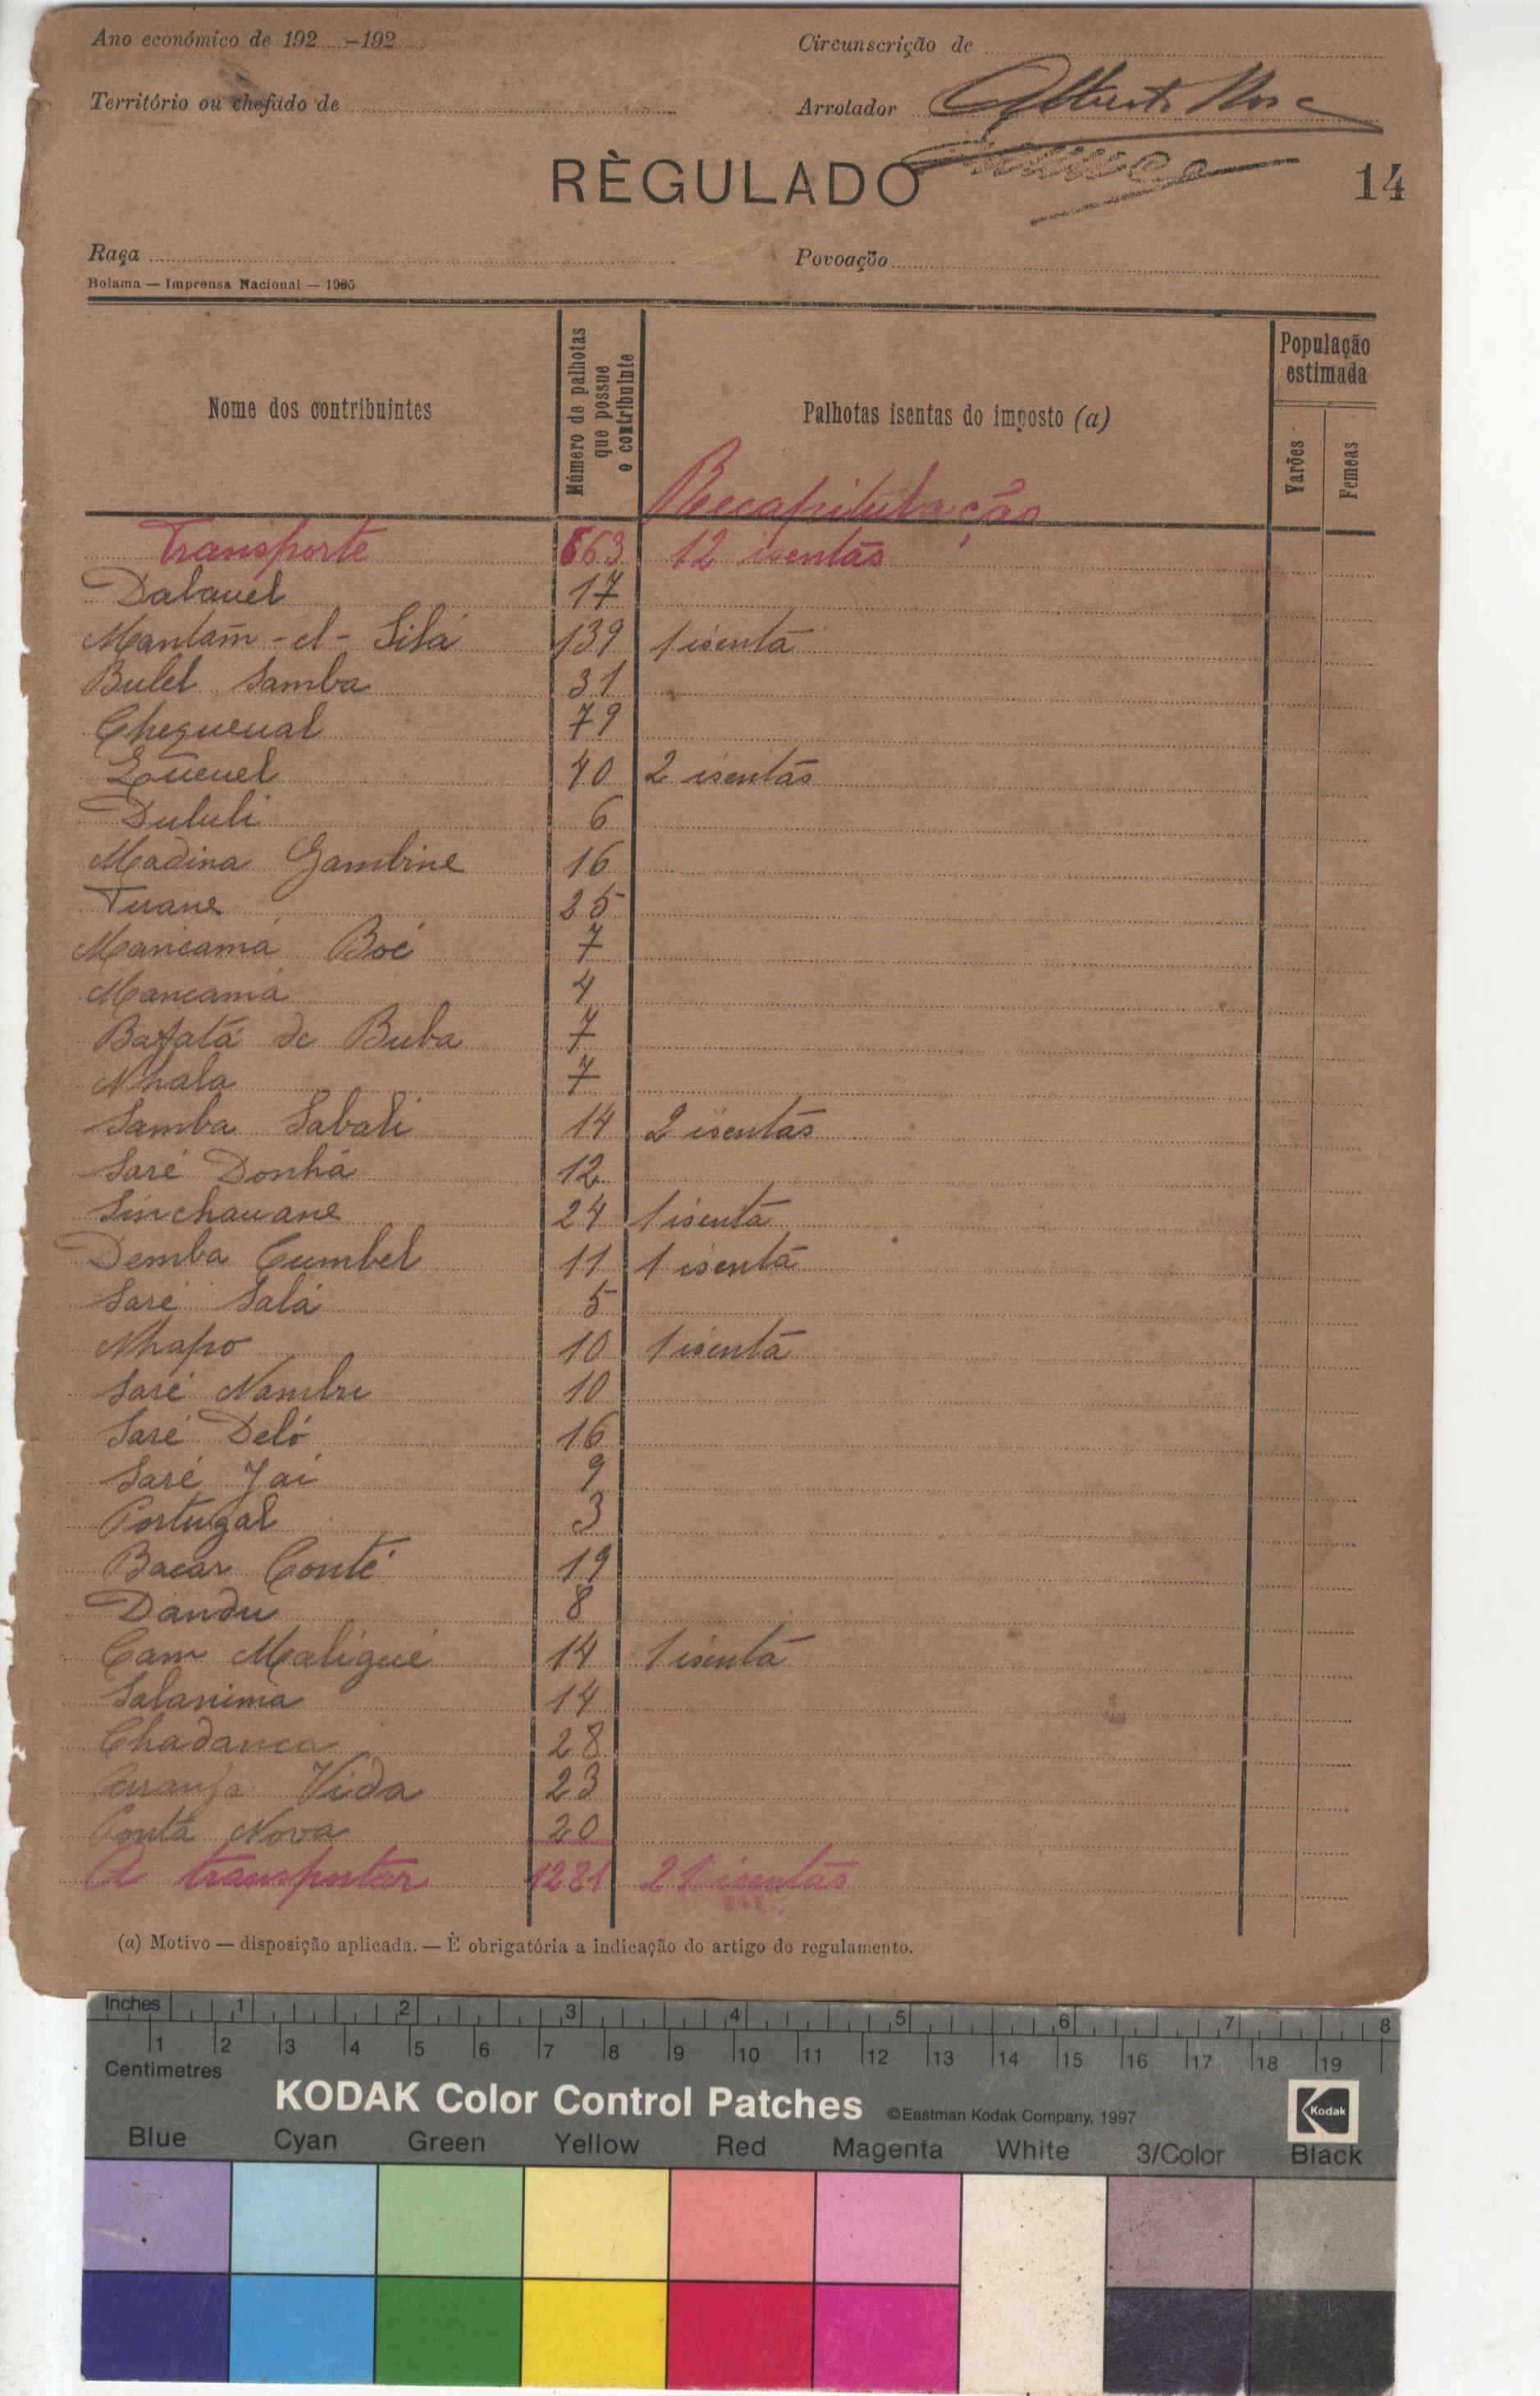 Ano económico de 192 -192
Circunscrição de
Território ou chefado de
Arrolador Alberto
RÈGULADO
14
Raça
Povoação
Bolama — Imprensa Nacional — 1925
Nome dos contribuintes
Número de palhotas que possue o contribuinte
Palhotas isentas do imposto (a)
População estimada
Varões
Femeas
Recapitulação
Transporte 663 12 isentas
Dalauel 17
Mantam-el-Silá 139 1 isenta
Bulel Samba 31
Chequeual 79
40 2 isentas
Dululi 6
Madina Gambine 16
Tuane 25
Mancamá Boé 7
Mancamá 4
Bafatá de Buba 7
Nhala 7
Samba Sabali 14 2 isentas
Saré Donhá 12
Sinchauane 24 1 isenta
Demba Cumbel 11 1 isenta
Saré Salá 5
Nhapo 10 1 isenta
Saré Nambu 10
Saré Deló 16
Saré Jai 9
Portugal 3
Bacar Conté 19
Dandu 8
Cam Maligué 14 1 isenta
Salanima 14
Chadanca 28
Vida 23
Ponta Nova 20
A transportar 1281 21 isentas
(a) Motivo — disposição aplicada. — É obrigatória a indicação do artigo do regulamento.
Inches 1 2 3 4 5 6 7 8
1 2 3 4 5 6 7 8 9 10 11 12 13 14 15 16 17 18 19
Centimetres
KODAK Color Control Patches ©Eastman Kodak Company, 1997 Kodak
Blue Cyan Green Yellow Red Magenta White 3/Color Black